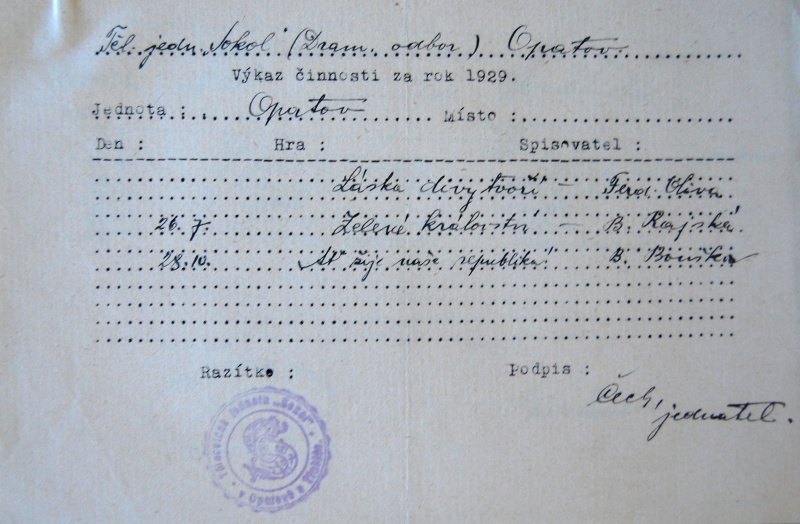 Těl. jedn. „Sokol" (Dram. odbor) Opatov
Výkaz činnosti za rok 1929.
Jednota : Opatov Místo :
Den : Hra : Spisovatel :
Láska divy tvoří – Ferd. Oliva
26. 7. Zelené království – B. Rajská
28.10. „Ať žije naše republika!" B. Bouška
Razítko : Podpis :
Čech, jednatel.
Tělocvičná jednota „Sokol"
v Opatově u